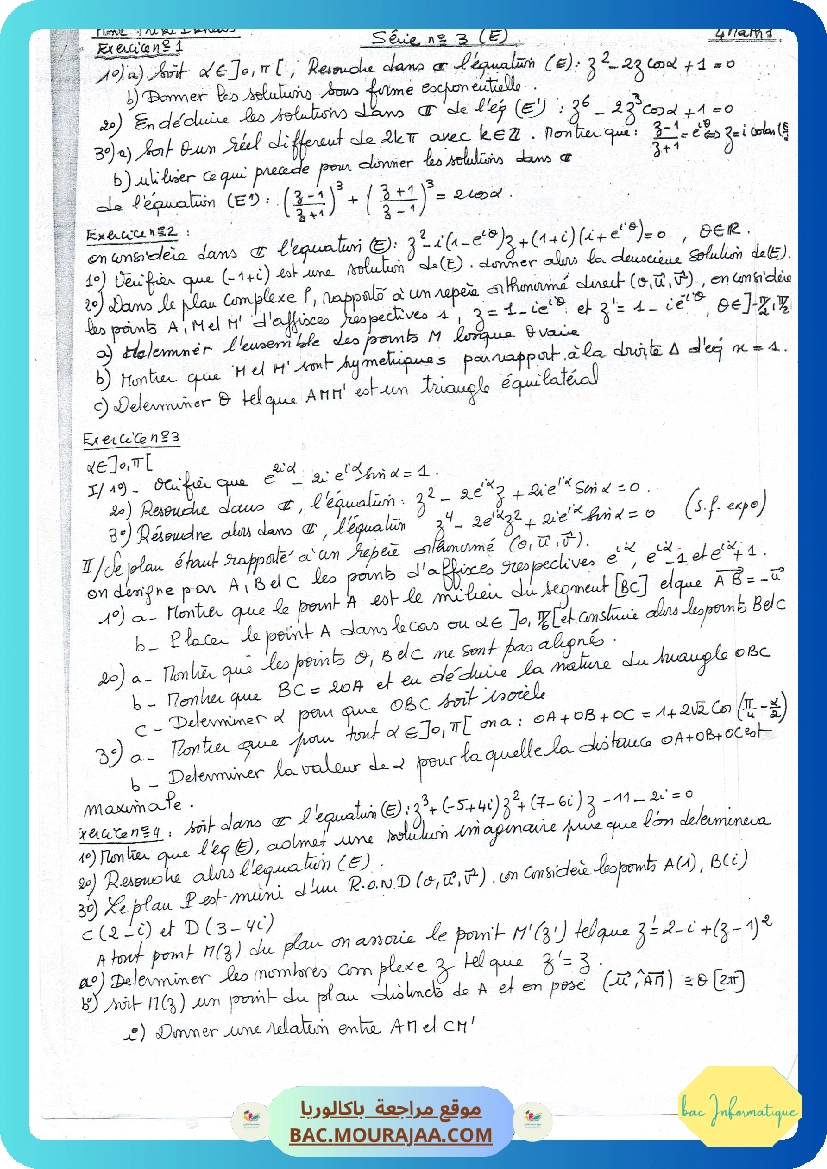 Série nº 3 (E)
4 Maths
Exercice nº 1
1º) a) Soit α ∈ ]0,π[ , Resoudre dans ℂ l'équation (E): z² - 2z cosα + 1 = 0
b) Donner les solutions sous forme exponentielle.
2º) En déduire les solutions dans ℂ de l'éq (E') : z⁶ - 2z³ cosα + 1 = 0
3º) a) Soit θ un réel différent de 2kπ avec k∈ℤ. Montrer que : (z-1)/(z+1) = e^{iθ} ⇔ z = i cotan(θ/2
b) utiliser ce qui precede pour donner les solutions dans ℂ
de l'équation (E'') : ((z-1)/(z+1))³ + ((z+1)/(z-1))³ = 2cosα.
Exercice nº 2 :
on considère dans ℂ l'équation (E): z² - i(1-e^{iθ})z + (1+i)(i+e^{iθ}) = 0 , θ∈ℝ.
1º) Vérifier que (-1+i) est une solution de (E). donner alors la deuxième solution de (E).
2º) Dans le plan complexe P, rapporté à un repère orthonormé direct (o,u⃗,v⃗), on considère
les points A, M et M' d'affixes respectives 1, z = 1-ie^{iθ} et z' = 1-ie^{-iθ}, θ∈]-π/2,π/2[
a) determiner l'ensemble des points M lorsque θ varie
b) Montrer que M et M' sont symetriques par rapport à la droite Δ d'éq x = 1.
c) Determiner θ tel que AMM' est un triangle équilatéral
Exercice nº 3
α∈]0,π[
I/ 1º)- Verifier que e^{2iα} - 2i e^{iα} sinα = 1.
2º) Resoudre dans ℂ, l'équation : z² - 2e^{iα}z + 2ie^{iα} Sinα = 0.
3º) Résoudre alors dans ℂ, l'équation z⁴ - 2e^{iα}z² + 2ie^{iα} sinα = 0 (s.f. expo)
II/ Le plan étant rapporté à un repère orthonormé (o,u⃗,v⃗).
on désigne par A, B et C les points d'affixes respectives e^{iα}, e^{iα}-1 et e^{iα}+1.
1º) a- Montrer que le point A est le milieu du segment [BC] et que AB⃗ = -u⃗
b- Placer le point A dans le cas ou α∈]0,π/6[ et construire alors les points B et C
2º) a- Montrer que les points O, B et C ne sont pas alignés.
b- Montrer que BC = 2OA et en déduire la nature du triangle OBC
c- Determiner α pour que OBC soit isocèle
3º) a- Montrer que pour tout α∈]0,π[ on a : OA+OB+OC = 1+2√2 Cos(π/4 - α/2)
b- Determiner la valeur de α pour laquelle la distance OA+OB+OC est
maximale.
Exercice nº 4 : soit dans ℂ l'équation (E): z³ + (-5+4i)z² + (7-6i)z - 11 - 2i = 0
1º) Montrer que l'éq (E), admet une solution imaginaire pure que l'on determinera
2º) Resoudre alors l'equation (E).
3º) Le plan P est muni d'un R.O.N.D (o,u⃗,v⃗). on considère les points A(1), B(i)
C(2-i) et D(3-4i)
A tout point M(z) du plan on associe le point M'(z') tel que z' = 2-i+(z-1)²
a) Determiner les nombres complexe z tel que z' = z.
b) soit M(z) un point du plan distincts de A et on pose (u⃗,AM⃗) ≡ θ [2π]
i) Donner une relation entre AM et CM'
موقع مراجعة باكالوريا
BAC.MOURAJAA.COM
bac Informatique